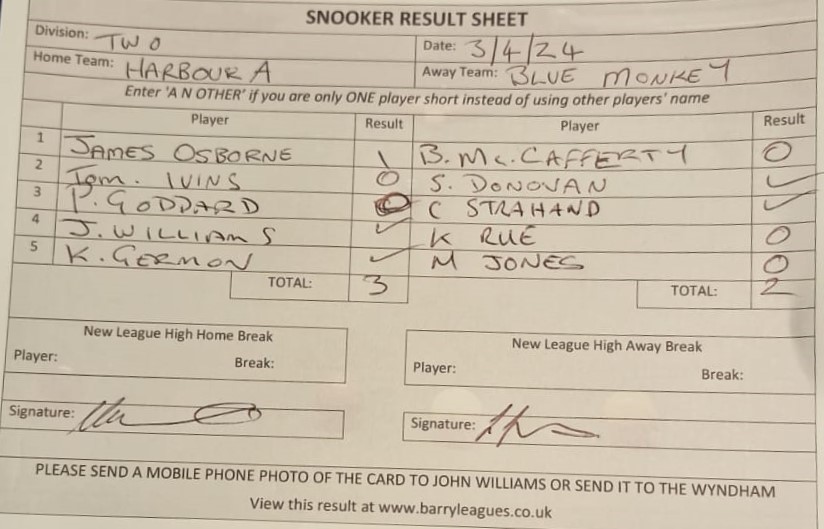 SNOOKER RESULT SHEET
Division: TWO Date: 3/4/24
Home Team: HARBOUR A Away Team: BLUE MONKEY
Enter 'A N OTHER' if you are only ONE player short instead of using other players' name
Player Result Player Result
1 JAMES OSBORNE 1 B. Mc. CAFFERTY 0
2 Tom. IVINS 0 S. DONOVAN ✓
3 P. GODDARD 0 C STRAHAND ✓
4 J. WILLIAMS ✓ K RUE 0
5 K. GERMON ✓ M JONES 0
TOTAL: 3 TOTAL: 2
New League High Home Break New League High Away Break
Player: Break: Player: Break:
Signature: Signature:
PLEASE SEND A MOBILE PHONE PHOTO OF THE CARD TO JOHN WILLIAMS OR SEND IT TO THE WYNDHAM
View this result at www.barryleagues.co.uk